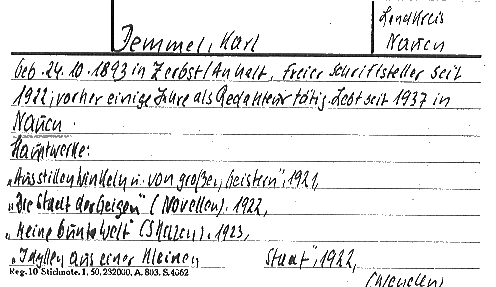 Landkreis
Demmel, Karl
Nauen
Geb. 24.10.1893 in Zerbst/Anhalt, freier Schriftsteller seit
1922, vorher einige Jahre als Redakteur tätig. Lebt seit 1937 in
Nauen.
Hauptwerke:
„Aus stillen Winkeln u. von großen Geistern", 1921,
„Die Stadt der Geigen" (Novellen). 1922,
„Meine bunte Welt" (Skizzen). 1923,
„Idyllen aus einer kleinen Stadt", 1922,
Reg. 10 Stichnote. 1, 50, 232000. A. 803. S. 4662